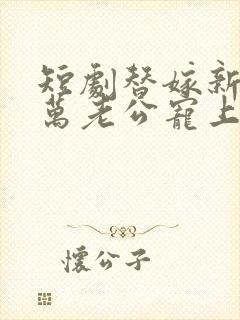 短劇替嫁新
萬老公寵上
懷公子